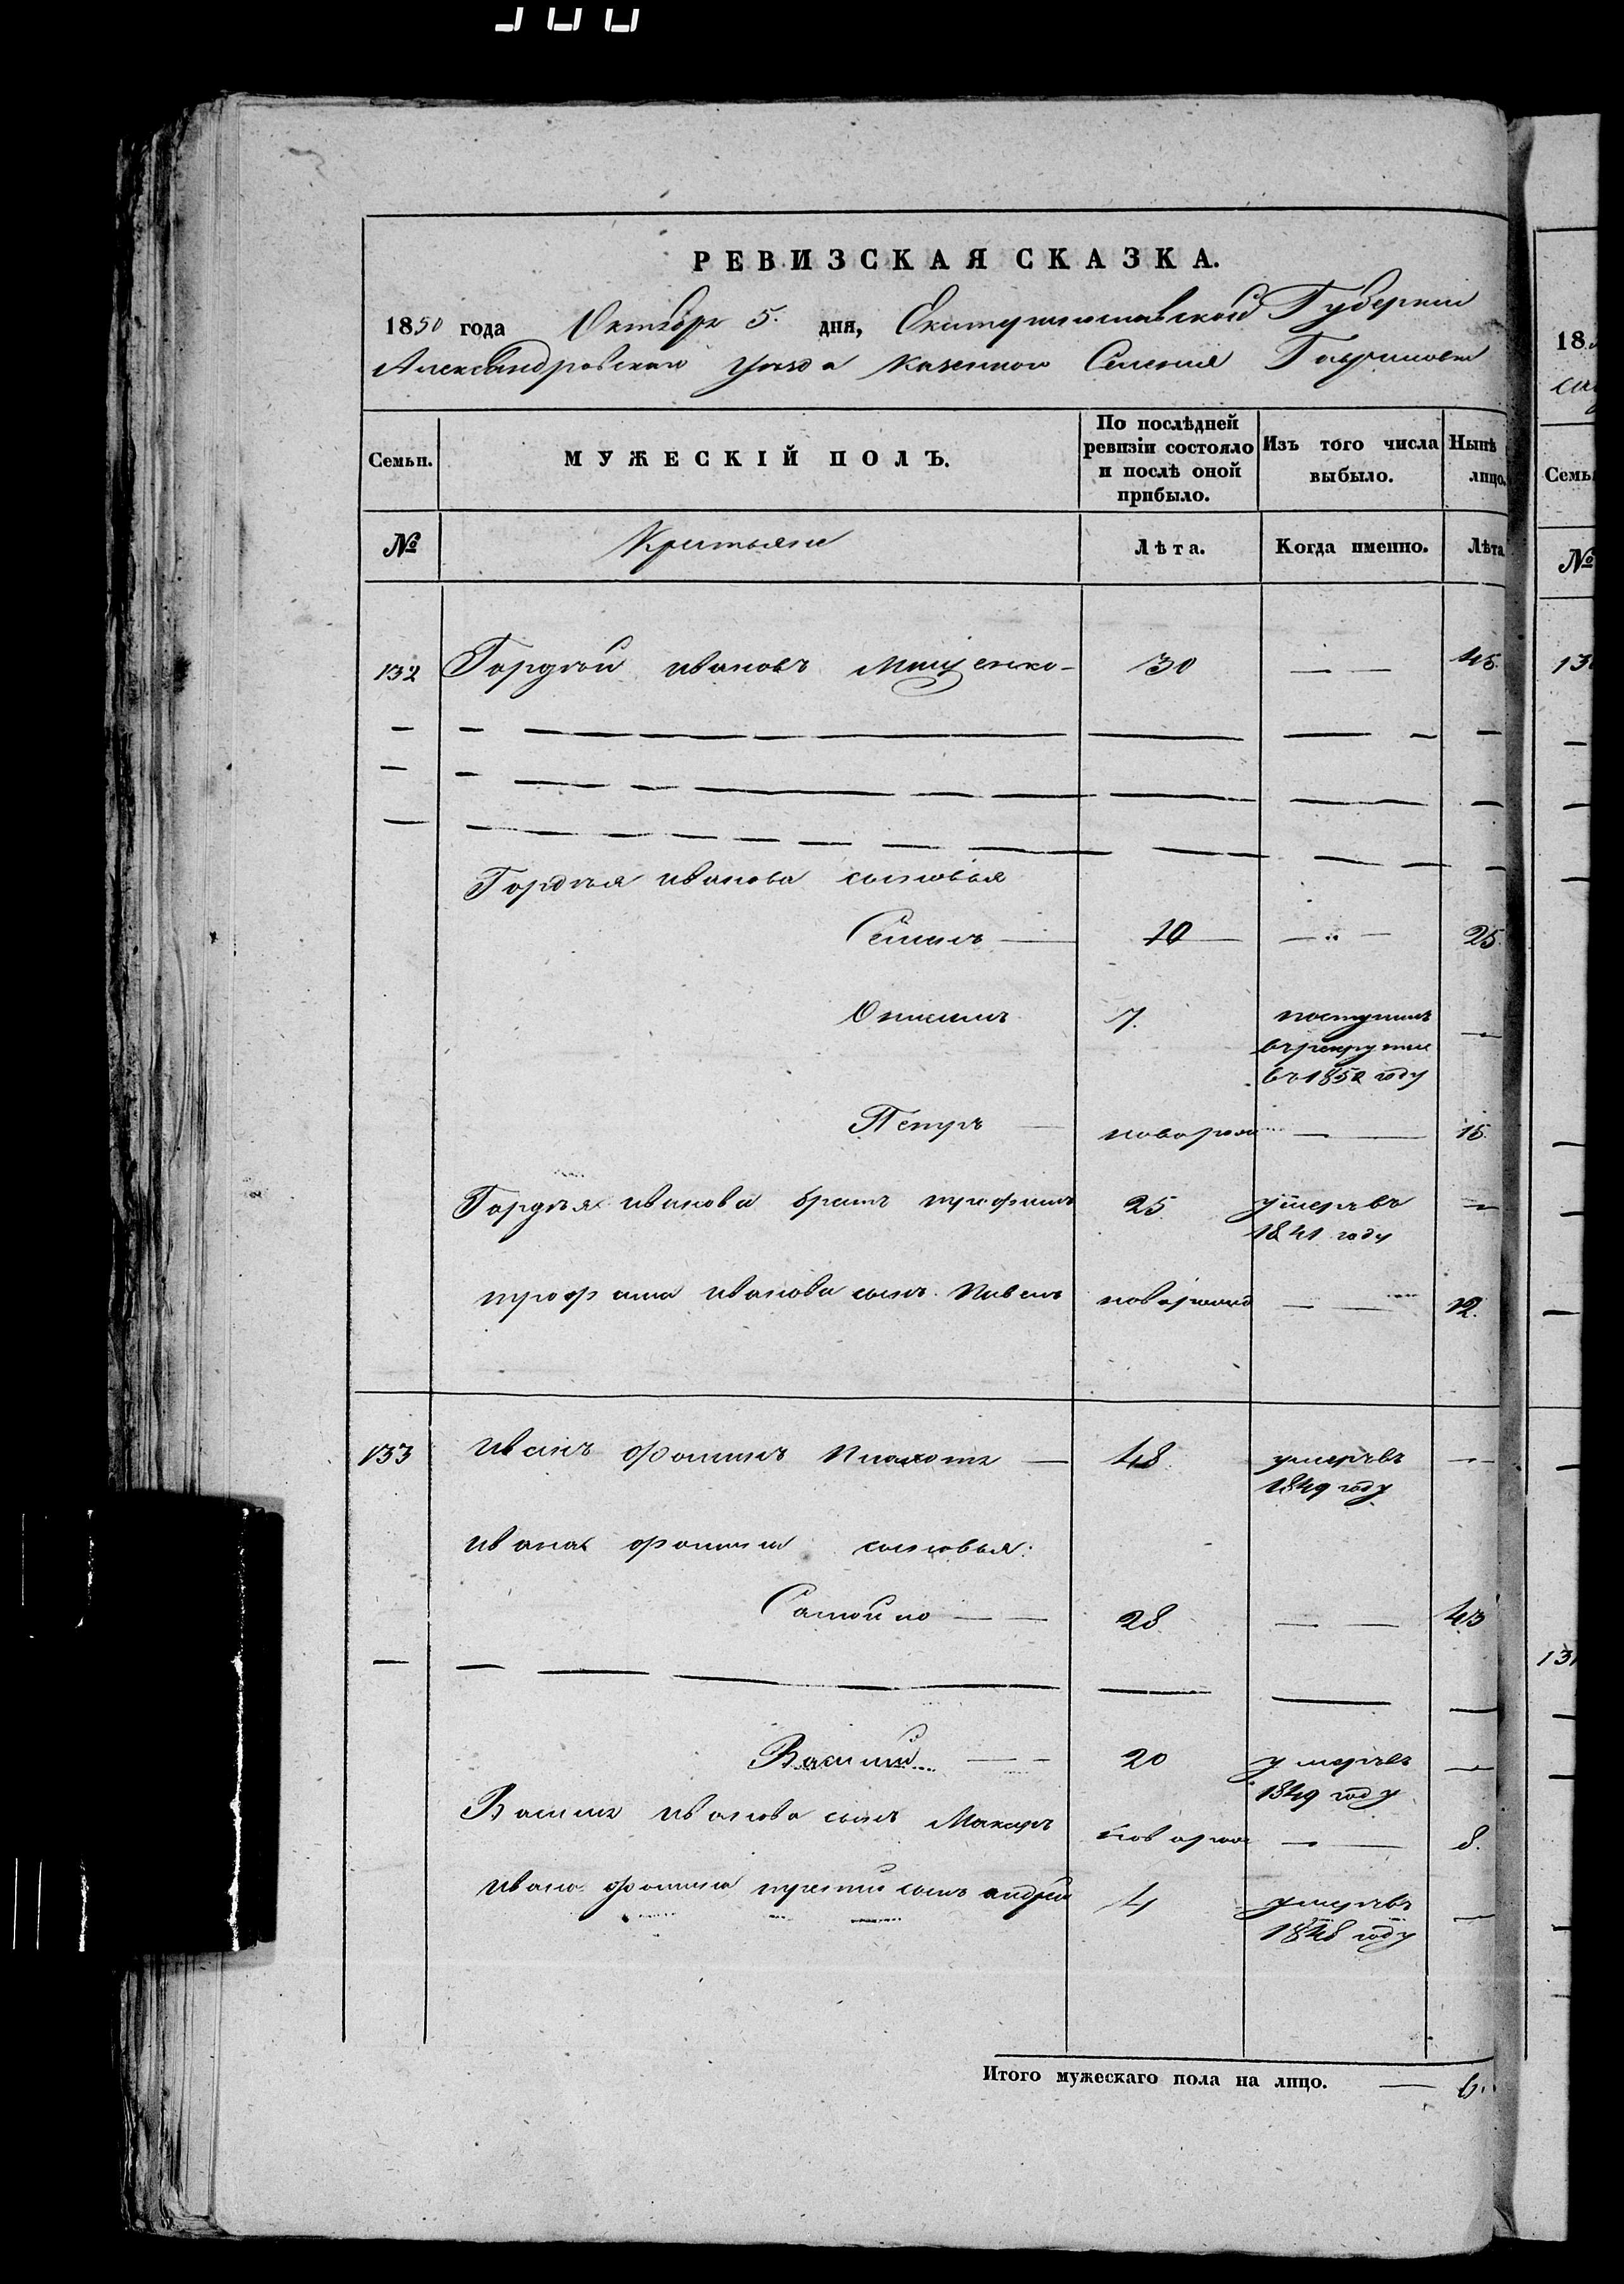 РЕВИЗСКАЯ СКАЗКА.
1850 года Октября 5. дня, Екатеринославской Губернии
Александровскаго уезда казенного Селения Гавриловки
Семьи. МУЖЕСКІЙ ПОЛЪ. По послѣдней ревизіи состояло и послѣ оной прибыло. Изъ того числа выбыло. Нынѣ лицо.
№ Крестьяне Лѣта. Когда именно. Лѣта
132 Гордѣй Ивановъ Мищенко 30 — — 45.
Гордѣя Иванова сыновья
Семенъ — 10 — 25.
Онисимъ 7. поступилъ
въ рекруты
въ 1852 году
Петръ — новорож — 15.
Гордѣя Иванова братъ Трофимъ 25. умеръ въ
1841 году
Трофима Иванова сынъ Павелъ новорожд — — 12.
133 Иванъ Фоминъ — 48. умеръ въ —
1849 году
Ивана Фомина сыновья:
Самойло — — 28 — — 43
Василий — — 20 умеръ въ —
1849 году
Василия Иванова сынъ Макаръ новорож — 8.
Ивана Фомина третий сынъ Андрей 4 умеръ въ —
1848 году
Итого мужескаго пола на лицо. — 6.
18
Семь
№